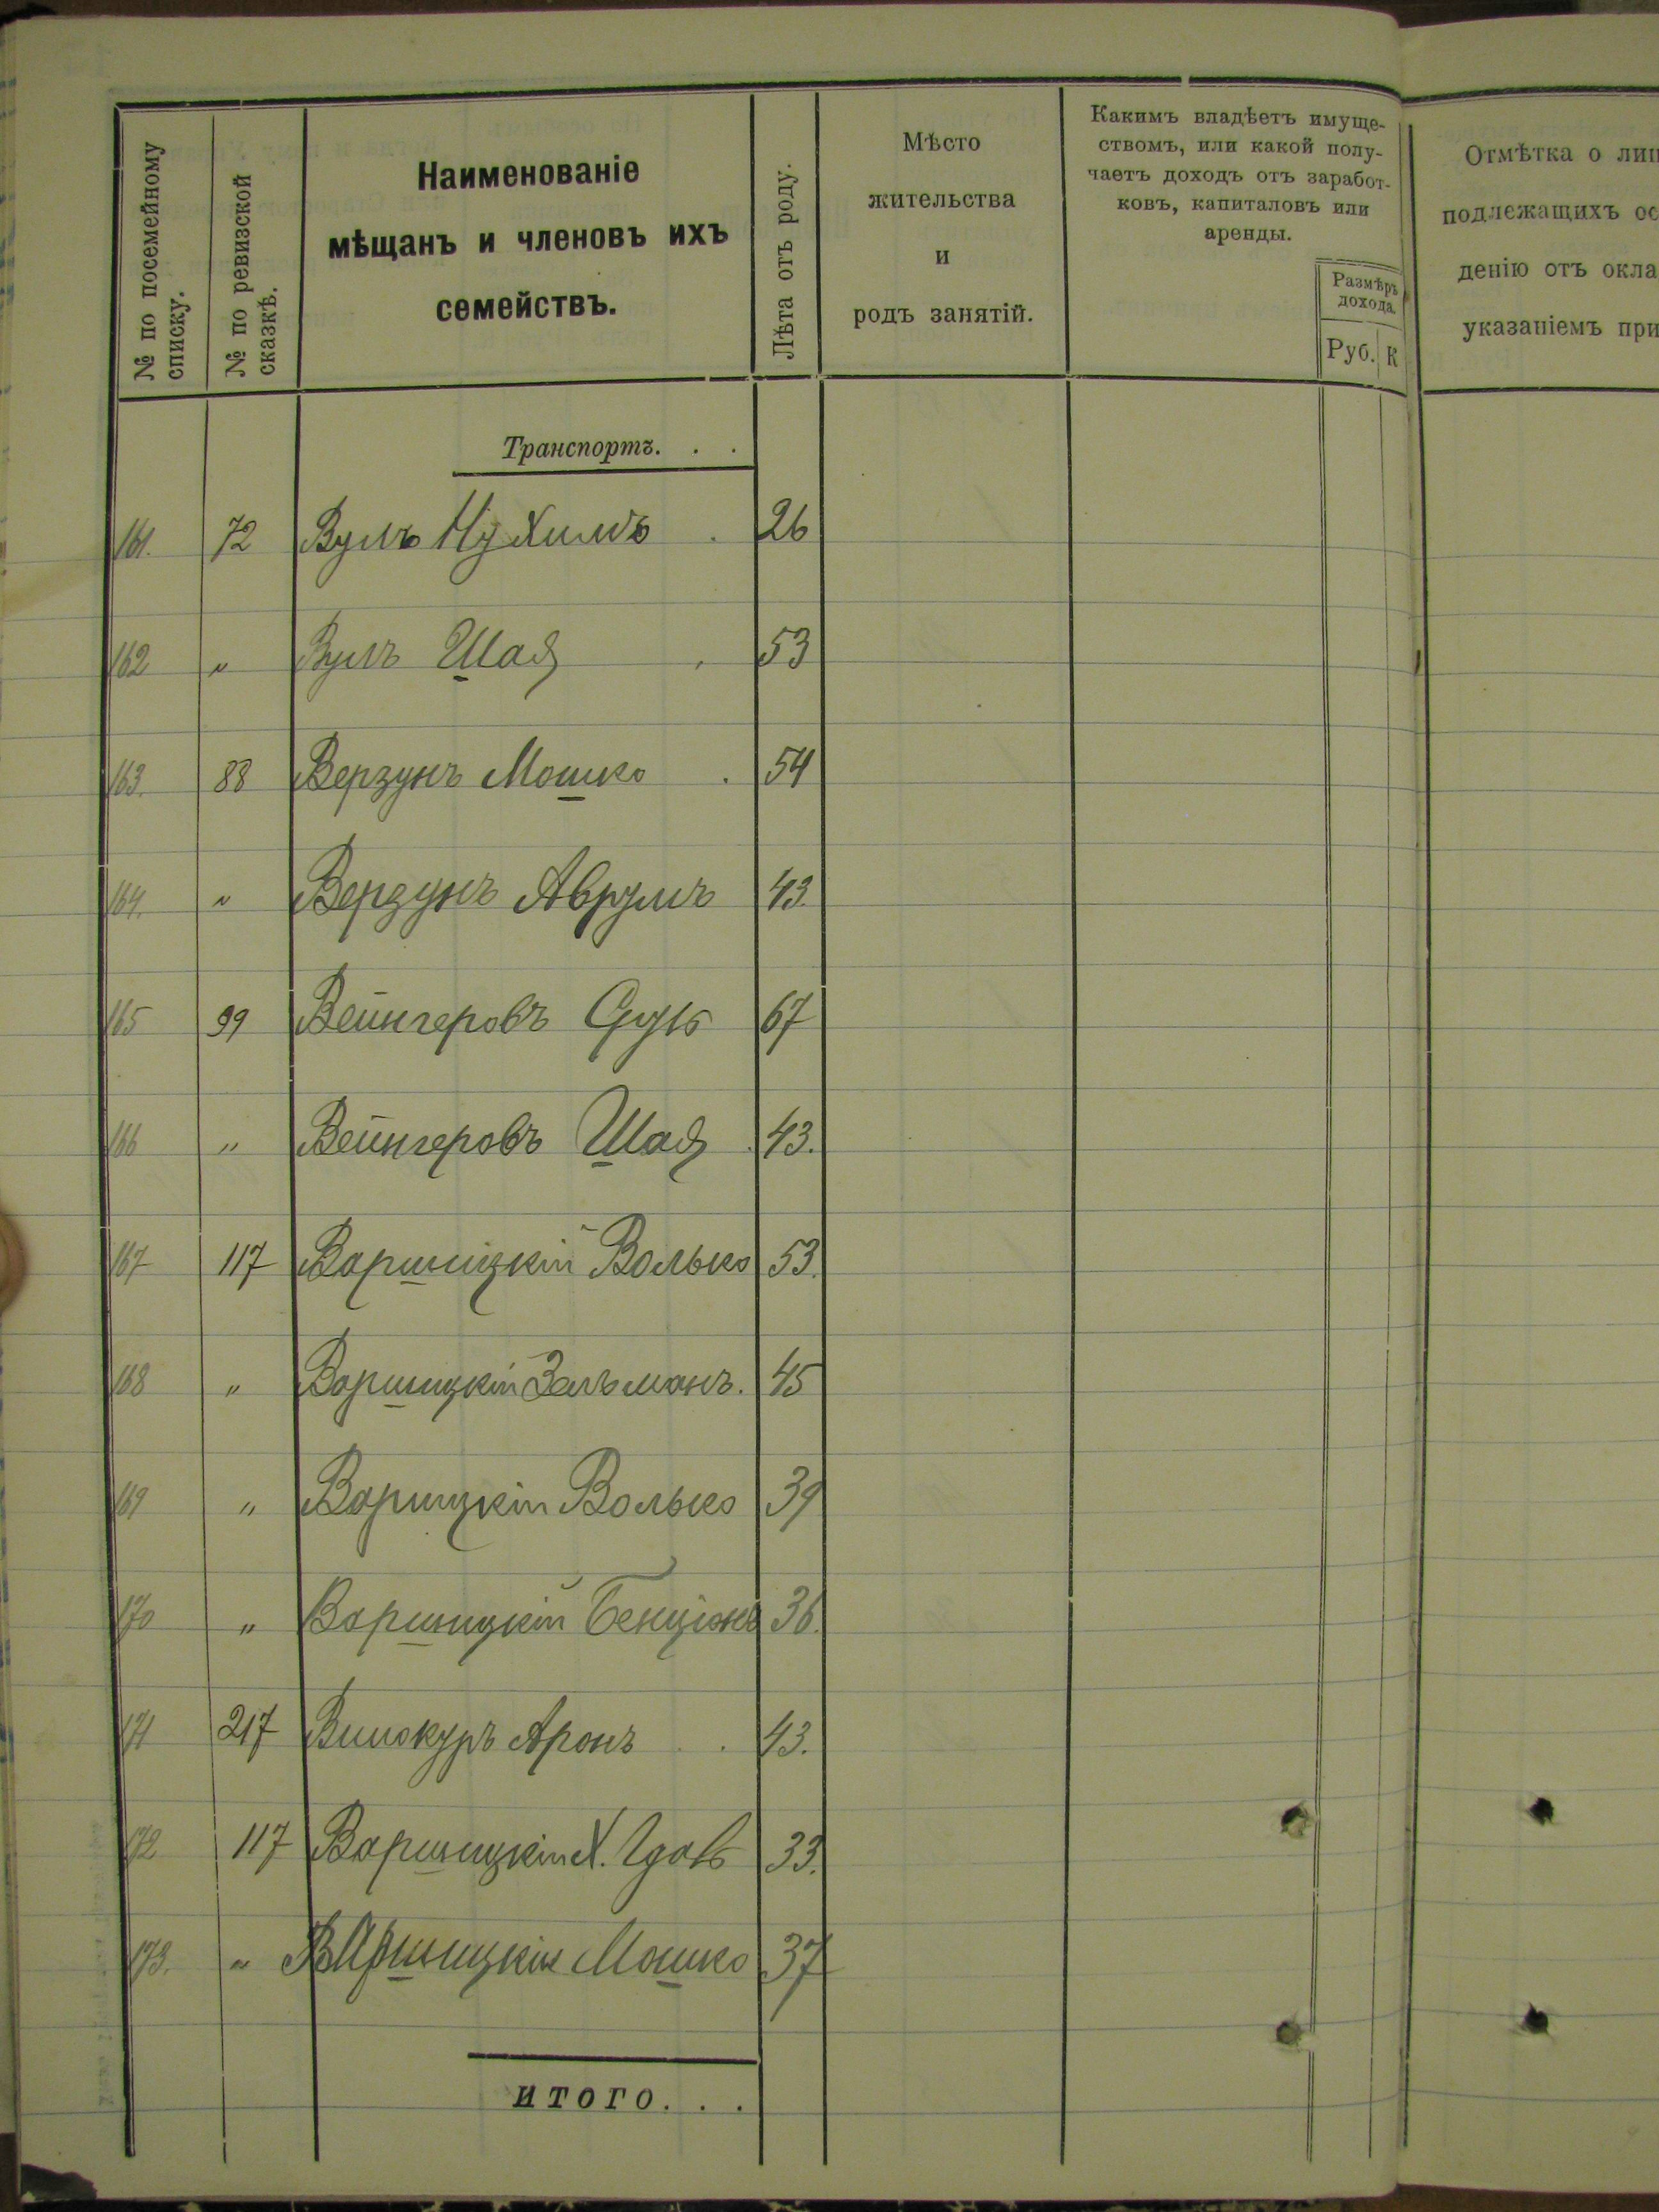 № по посемейному
списку.
№ по ревизской
сказкѣ.
Наименованіе
мѣщанъ и членовъ ихъ
семействъ.
Лѣта отъ роду.
Мѣсто
жительства
и
родъ занятій.
Какимъ владѣетъ имуще-
ствомъ, или какой полу-
чаетъ доходъ отъ заработ-
ковъ, капиталовъ или
аренды.
Размѣръ
дохода.
Руб. К
Отмѣтка о лиц
подлежащихъ ос
денію отъ окла
указаніемъ при
Транспортъ. . .
161. 72 Вулъ Нухимъ . 26
162 " Вулъ Шая . 53
163. 88 Верзунъ Мошко . 54
164. " Верзунъ Аврумъ 43.
165 99 Вейнгеровъ Сруль 67
166 " Вейнгеровъ Шая . 43.
167 117 Варшицкій Волько 53.
168 " Варшицкій Зельманъ. 45
169 " Варшицкій Волько 39
170 " Варшицкій Бенціонъ 36.
171 217 Винокуръ Аронъ . . 43.
172 117 Варшицкій Х. 33.
173. " Варшицкій Мошко 37
итого. . .